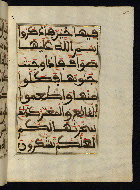 فيها خير فاذكروا
اسم الله عليها
صواف فاذا وجبت
جنوبها فكلوا
منها واطعموا
القانع والمعتر كذ
لك سخرنها لكم
لعلكم تشكرون